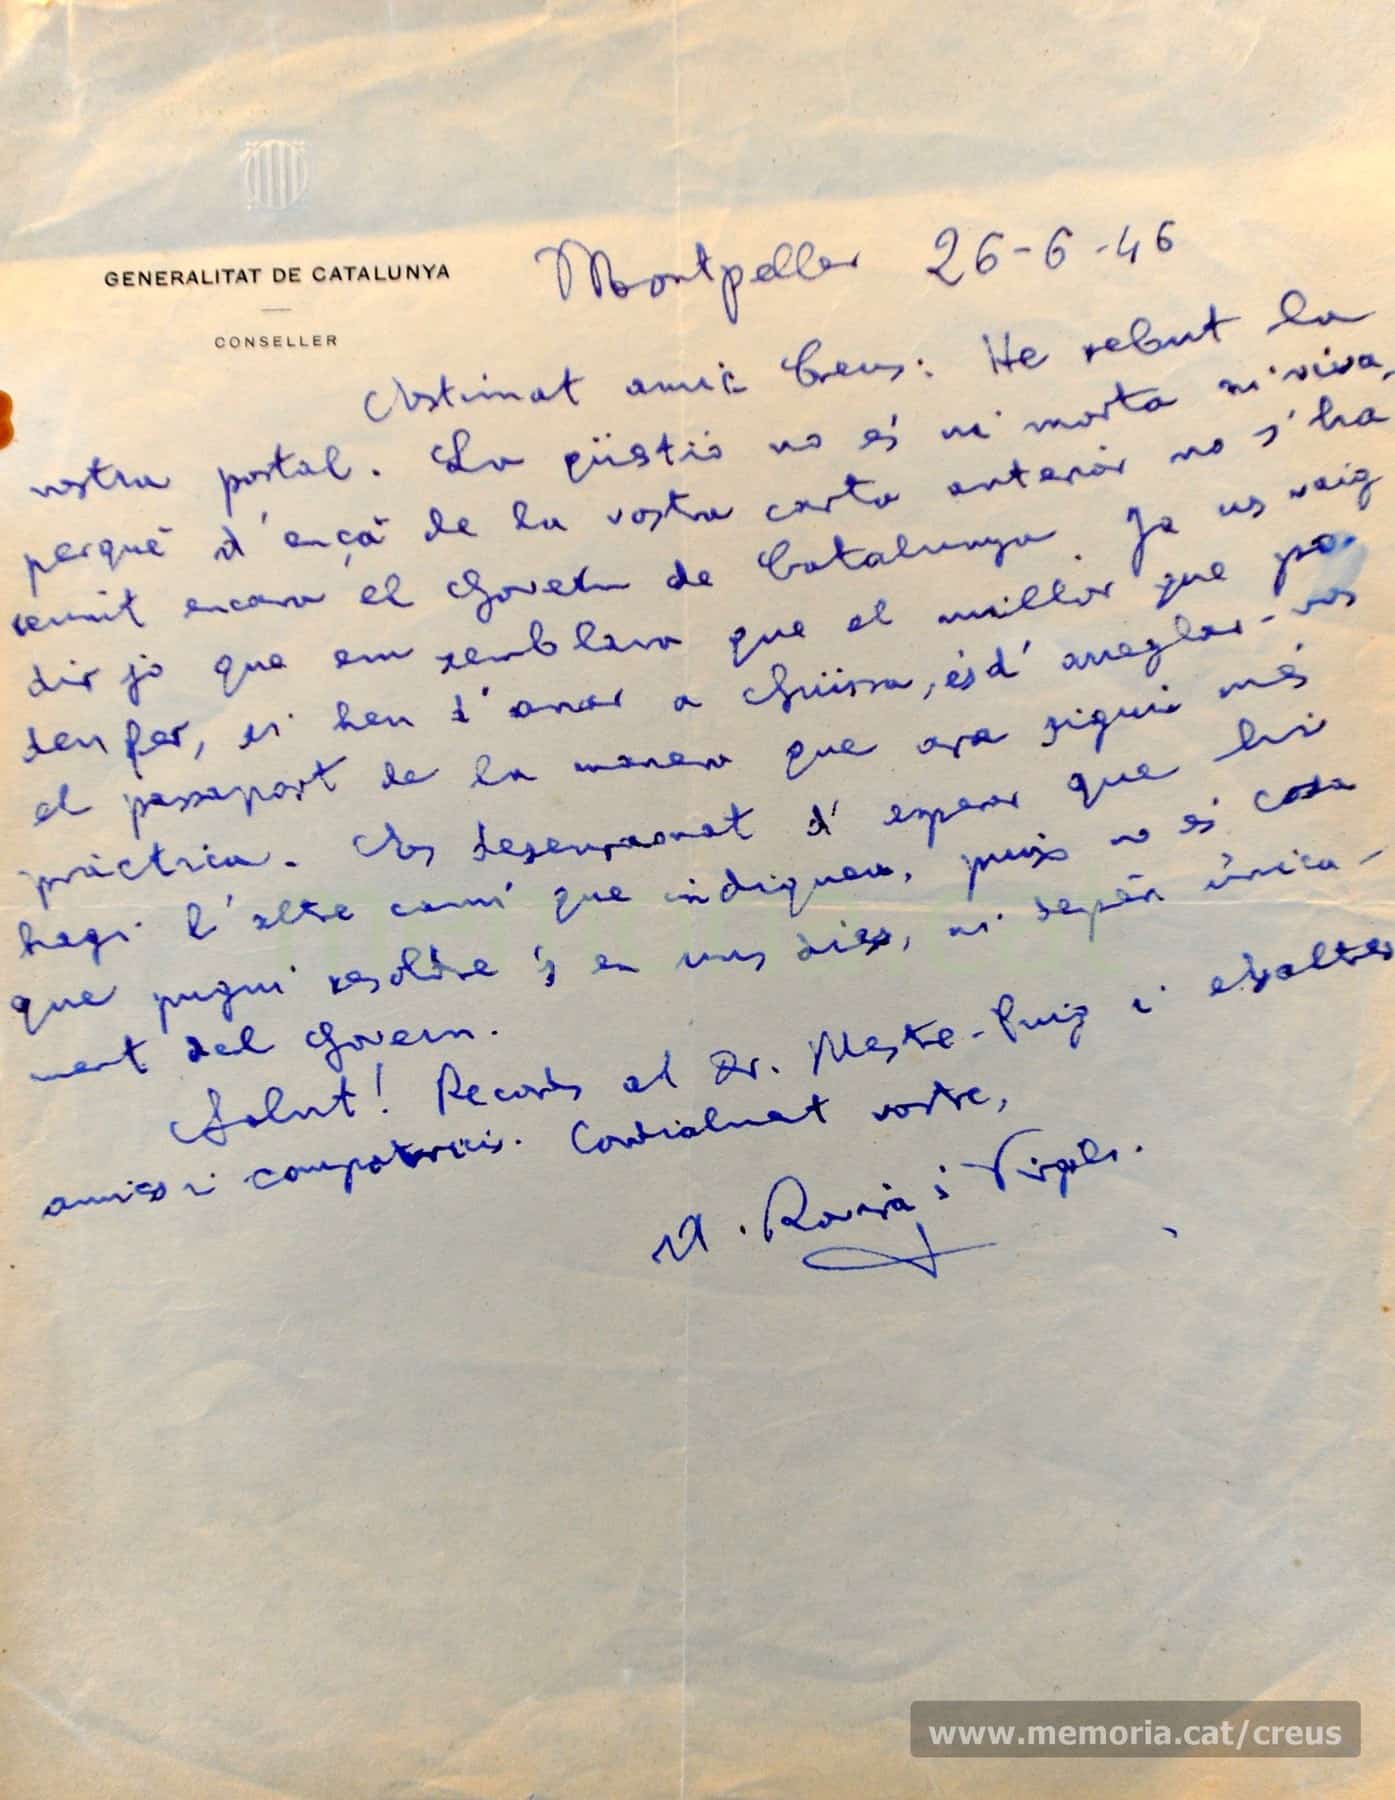 GENERALITAT DE CATALUNYA
CONSELLER
Montpeller 26-6-46
Estimat amic Creus: He rebut la
vostra postal. La qüestió no és ni morta ni viva,
perquè d'ençà de la vostra carta anterior no s'ha
reunit encara el Govern de Catalunya. Ja us vaig
dir jo que em semblava que el millor que po-
deu fer, si heu d'anar a Suïssa, és d'arreglar-vos
el passaport de la manera que ara sigui més
pràctica. Es desenraonat d'esperar que hi
hagi l'altre camí que indiqueu, puix no és cosa
que pugui resoldre's en uns dies, ni depèn única-
ment del Govern.
Salut! Records al Dr. Mestre-Puig i els altres
amics i compatricis. Cordialment vostre,
A. Rovira i Virgili.
www.memoria.cat/creus